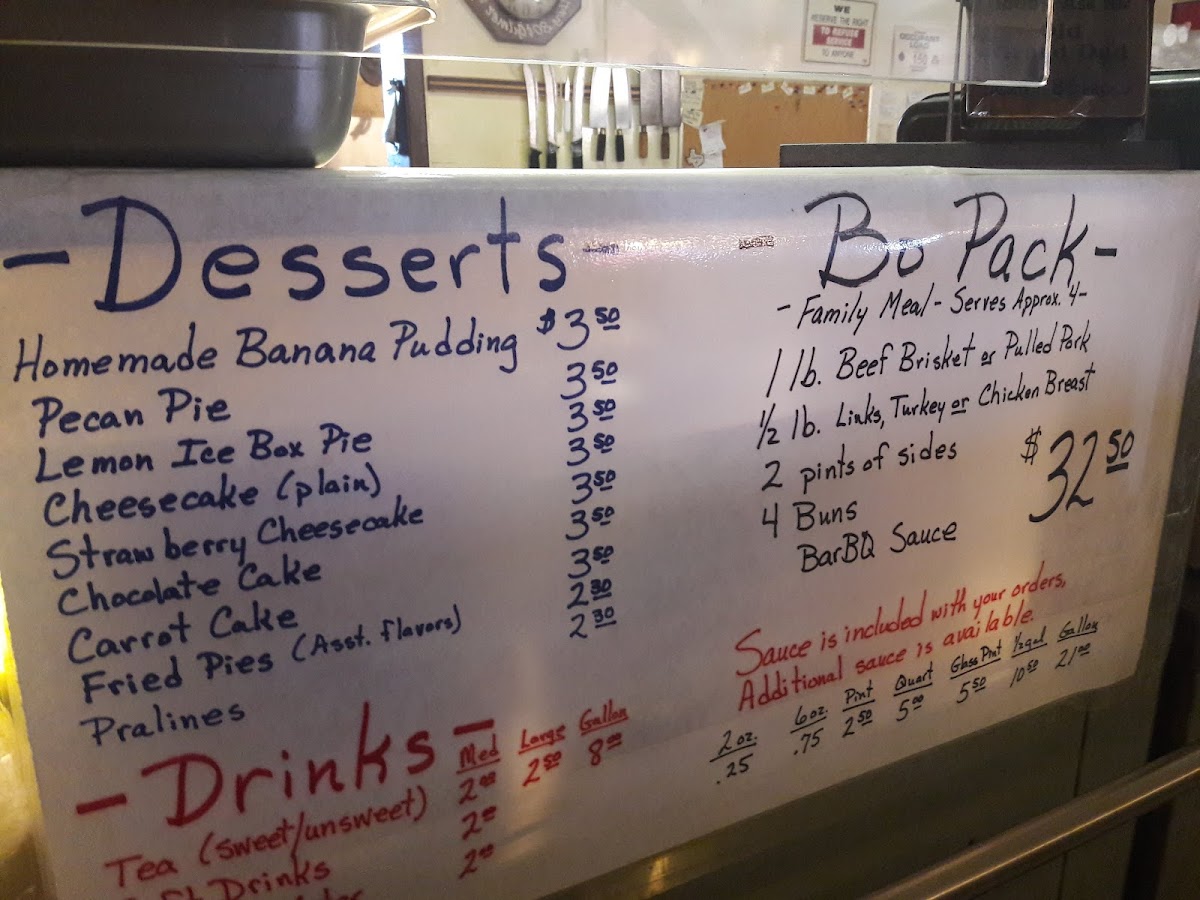 WE
RESERVE THE RIGHT
TO REFUSE
SERVICE
TO ANYONE
OCCUPANT
LOAD
150
- Desserts -
Homemade Banana Pudding $3.50
Pecan Pie 3.50
Lemon Ice Box Pie 3.50
Cheesecake (plain) 3.50
Strawberry Cheesecake 3.50
Chocolate Cake 3.50
Carrot Cake 3.50
Fried Pies (Asst. flavors) 2.30
Pralines 2.30
- Drinks -
Med Large Gallon
Tea (sweet/unsweet) 2.00 2.50 8.00
Drinks 2.00
2.00
- Bo Pack -
- Family Meal - Serves Approx. 4-
1 lb. Beef Brisket or Pulled Pork
1/2 lb. Links, Turkey or Chicken Breast
2 pints of sides
4 Buns
BarBQ Sauce
$32.50
Sauce is included with your orders,
Additional sauce is available.
2 oz. 6 oz. Pint Quart Glass Pint 1/2 gal Gallon
.25 .75 2.50 5.00 5.50 10.50 21.00